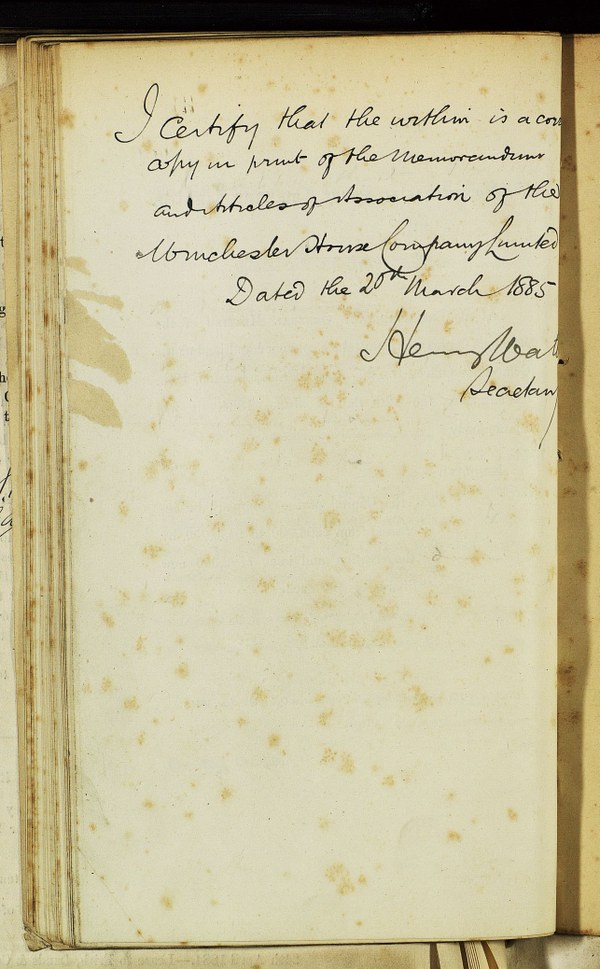 I certify that the within is a cor
copy in print of the Memorandum
and Articles of Association of the
Winchester House Company Limited
Dated the 20th March 1885
Henry Wat
Secretary